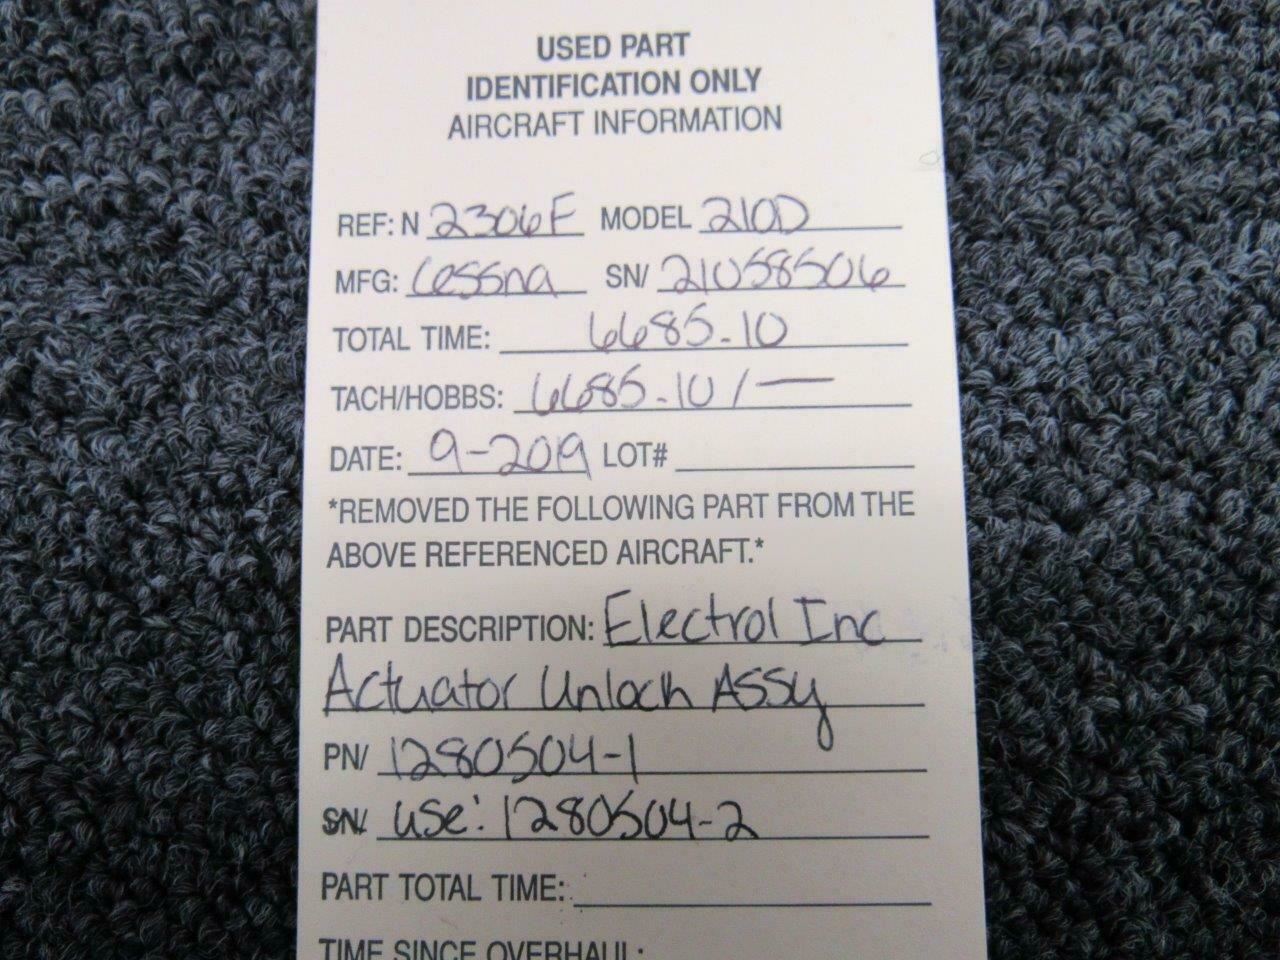 USED PART
IDENTIFICATION ONLY
AIRCRAFT INFORMATION
REF: N 2306F MODEL 210D
MFG: Cessna SN/ 21058506
TOTAL TIME: 6685.10
TACH/HOBBS: 6685.10 / —
DATE: 9-2019 LOT#
*REMOVED THE FOLLOWING PART FROM THE
ABOVE REFERENCED AIRCRAFT.*
PART DESCRIPTION: Electrol Inc
Actuator Unlock Assy
PN/ 1280504-1
SN/ use: 1280504-2
PART TOTAL TIME:
TIME SINCE OVERHAUL: